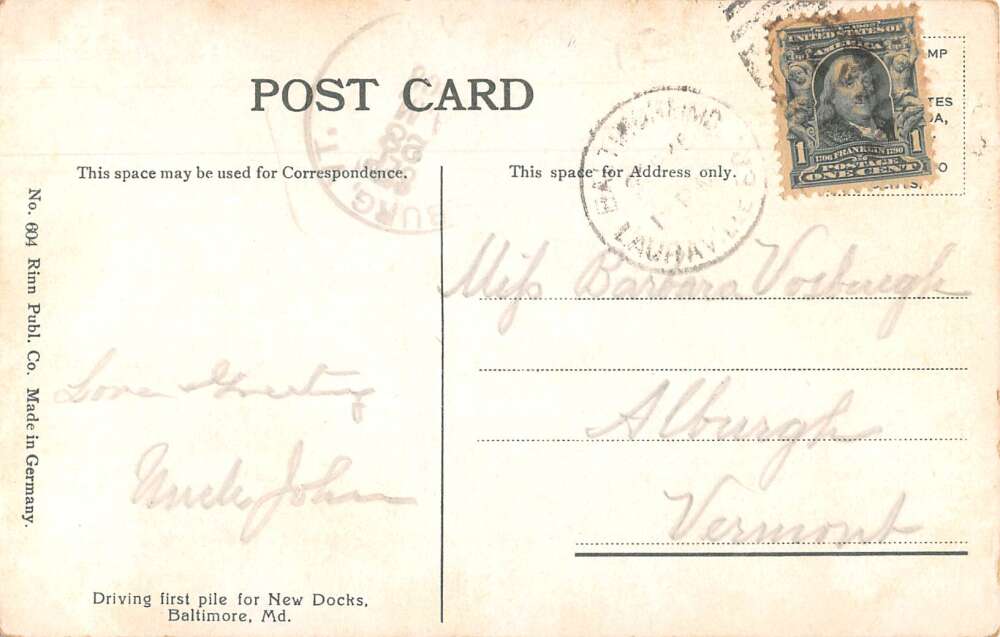 POST CARD
This space may be used for Correspondence.
This space for Address only.
UNITED STATES OF
AMERICA
1
1
1706 FRANKLIN 1790
POSTAGE
ONE CENT
MP
TES
DA,
O
CENTS,
BURG,
VT.
LAURAVILLE
Miss Barbara Vosburgh
Alburgh
Vermont
Love Greeting
Uncle John
Driving first pile for New Docks,
Baltimore, Md.
No. 604 Rinn Publ. Co. Made in Germany.